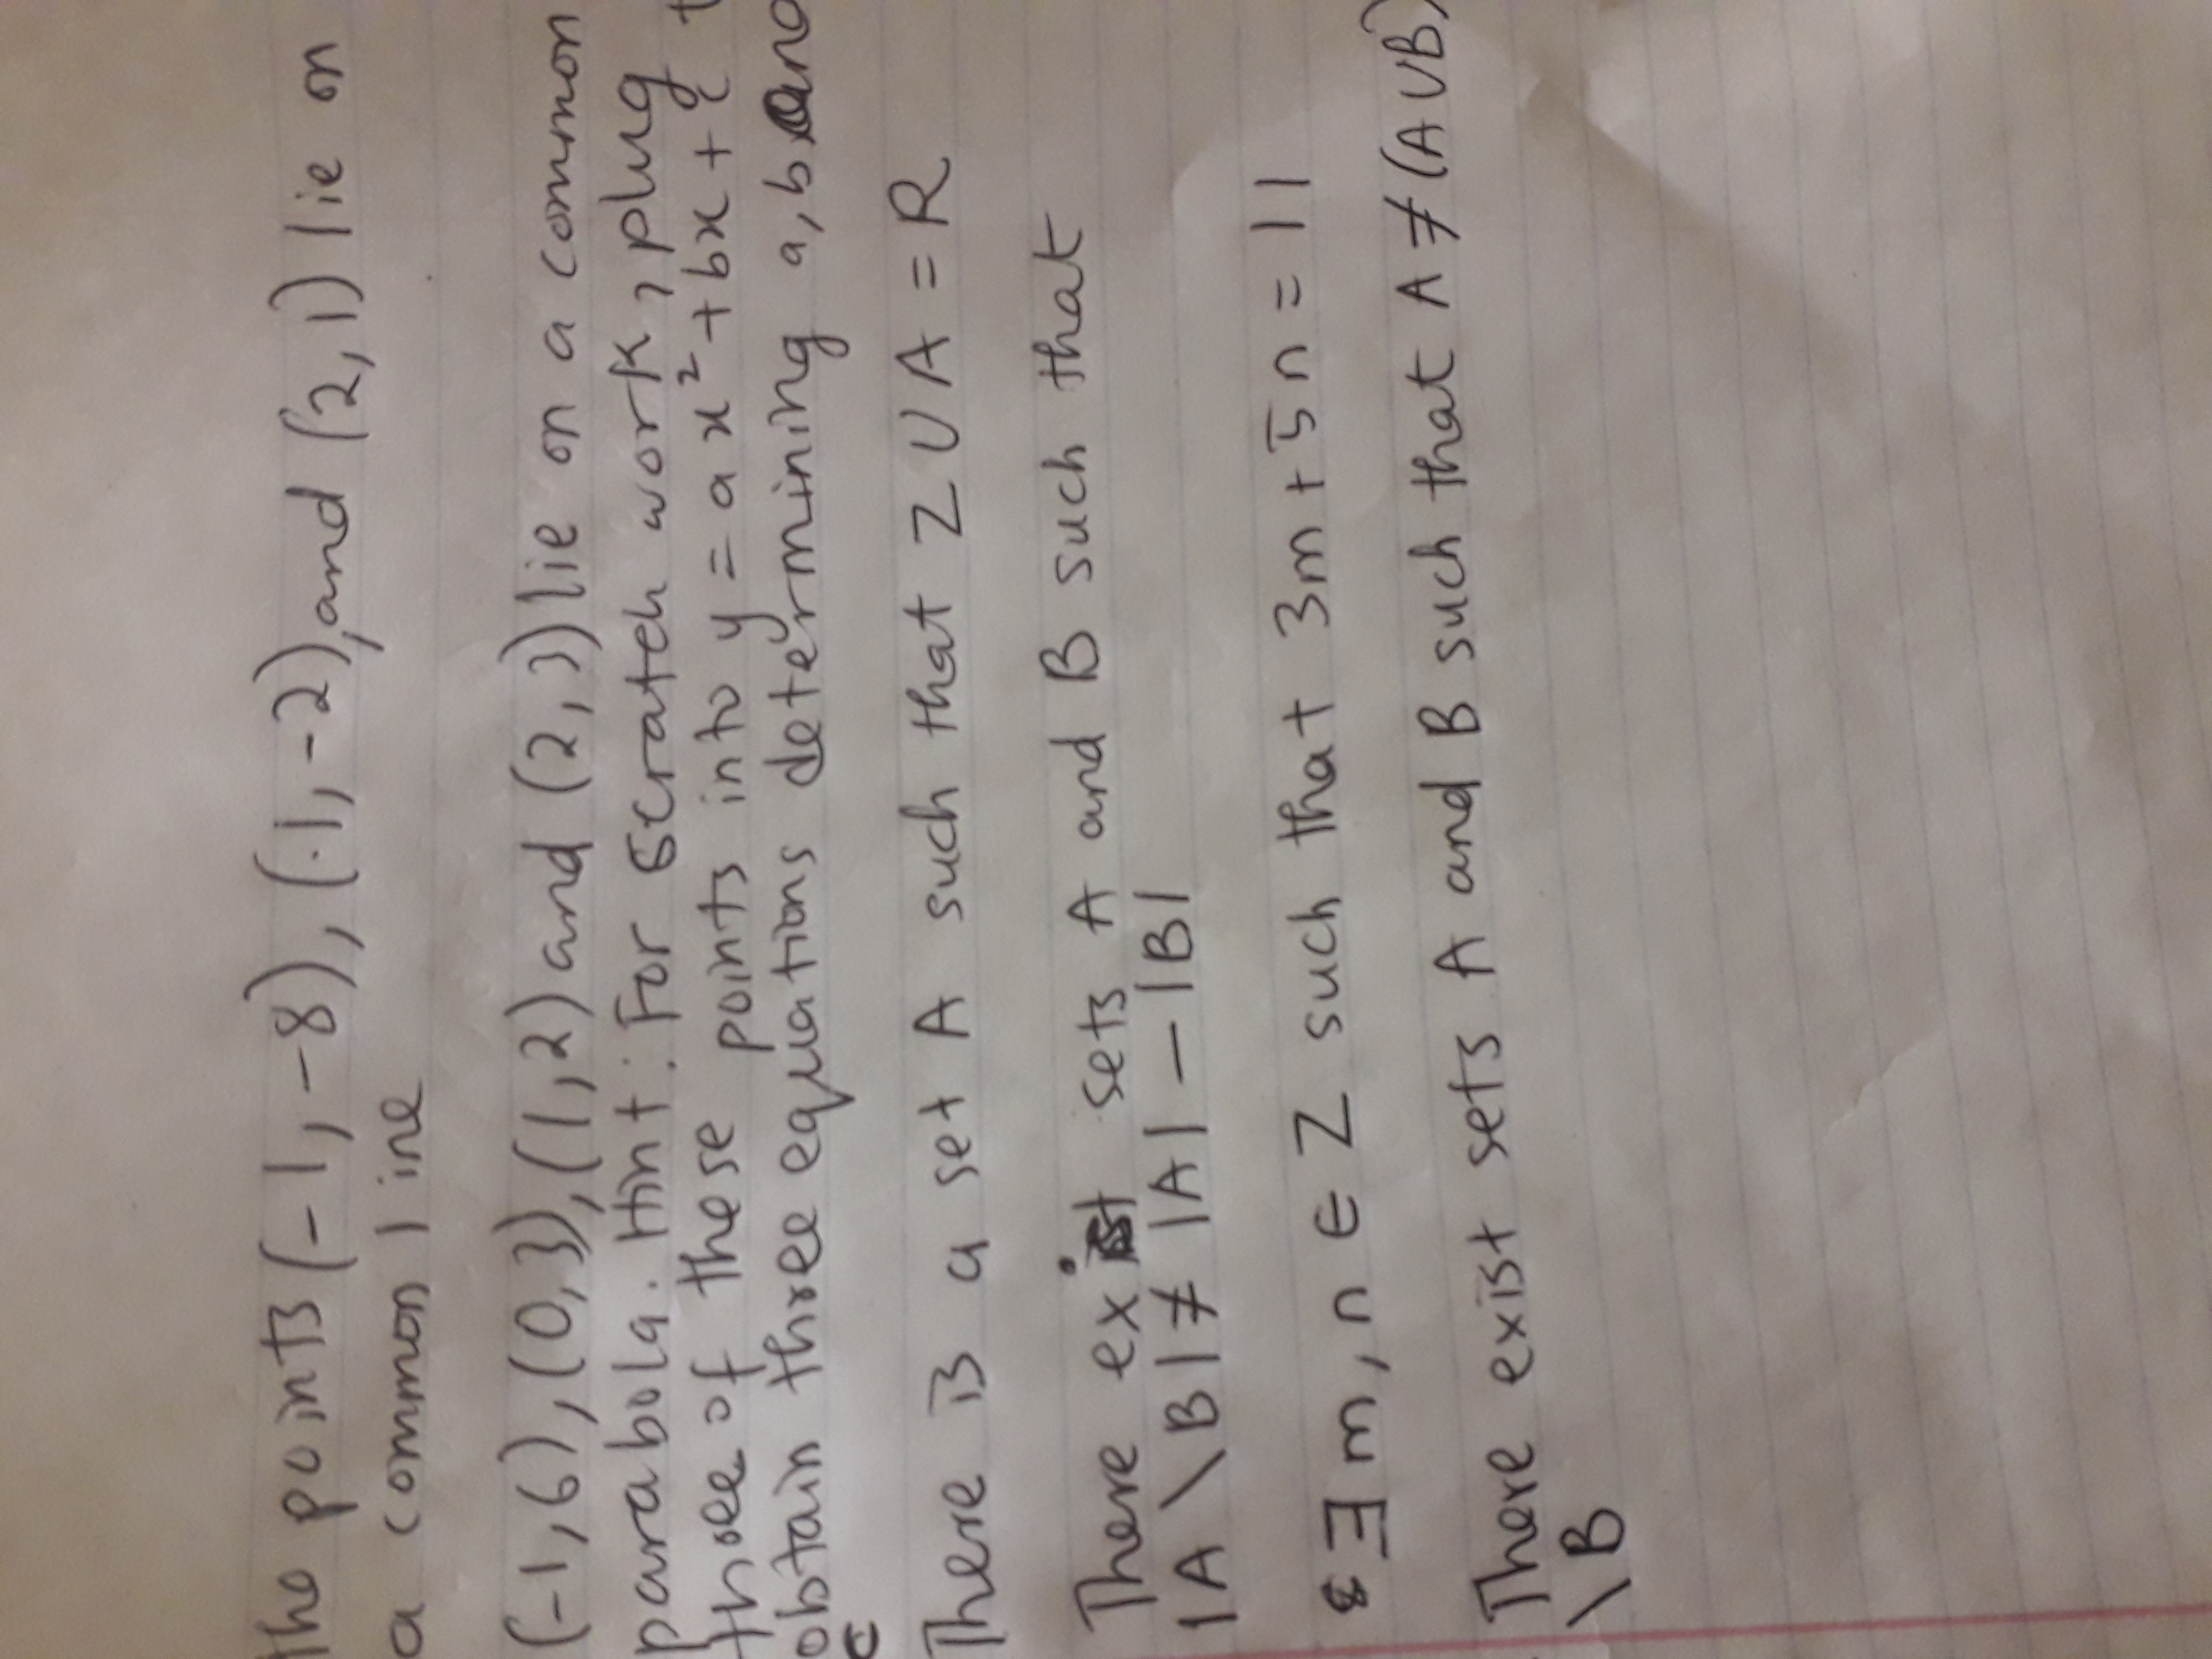 The points (-1, -8), (1, -2), and (2, 1) lie on
a common line
(-1, 6), (0, 3), (1, 2) and (2, 3) lie on a common
parabola. Hint: For scratch work, plug
three of these points into y = ax² + bx + c t
obtain three equations determining a, b and
c
There is a set A such that Z ∪ A = R
There exist sets A and B such that
|A \ B| ≠ |A| - |B|
∃ m, n ∈ Z such that 3m + 5n = 11
There exist sets A and B such that A ≠ (A ∪ B)
\ B